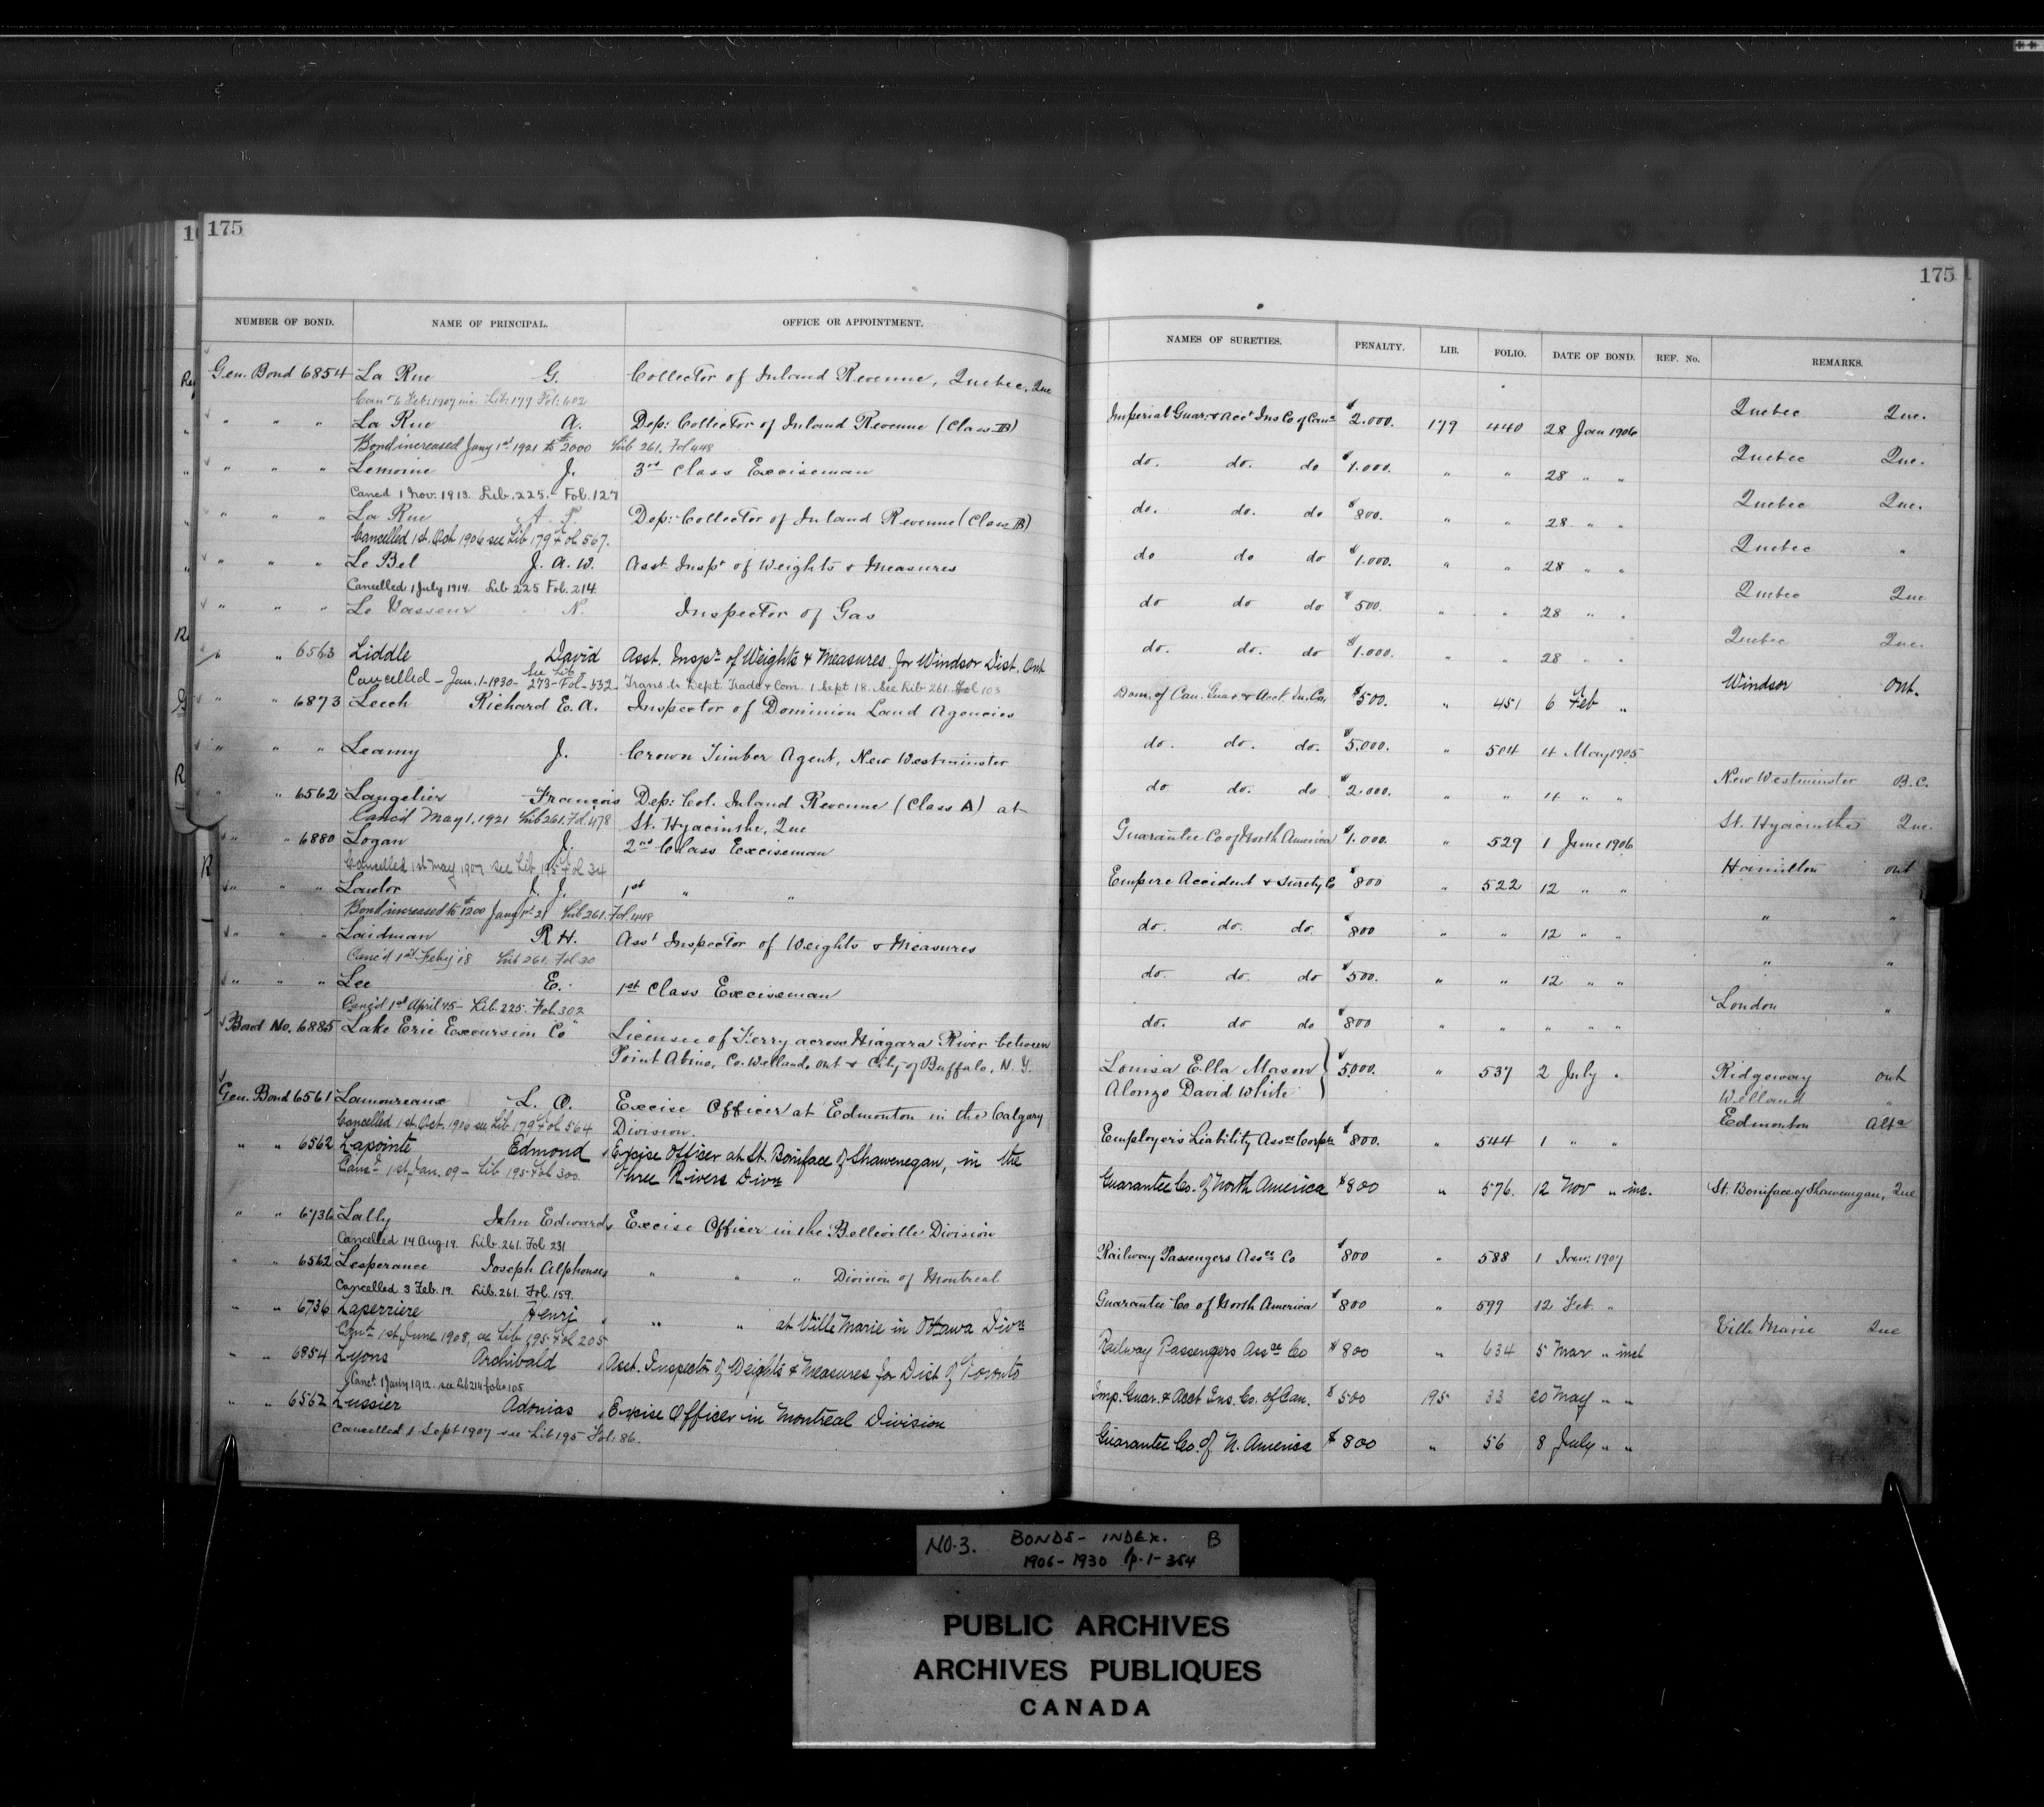 175
NUMBER OF BOND. NAME OF PRINCIPAL. OFFICE OR APPOINTMENT.
Gen. Bond 6854 La Rue G. Collector of Inland Revenue, Quebec, Que
Canc 6 Feb: 1907 Lib: 179 Fol: 602
" " " La Rue A. Dep: Collector of Inland Revenue (Class B)
Bond increased Jany 1st 1921 to $2000 Lib 261. Fol 448
" " " Lemoine J. 3rd Class Exciseman
Cancd 1 Nov. 1913. Lib. 225. Fol. 127
" " " La Rue A. P. Dep: Collector of Inland Revenue (Class B)
Cancelled 1st Oct 1906 see Lib 179 Fol. 567.
" " " Le Bel J. A. W. Asst Inspr of Weights & Measures
Cancelled 1 July 1914. Lib 225 Fol. 214.
" " " Le Vasseur N. Inspector of Gas
" " 6563 Liddle David Asst. Inspr of Weights & Measures for Windsor Dist. Ont
Cancelled - Jan. 1-1930 - See Lib 273 - Fol - 532 Trans. to Dept. Trade & Com. 1 Sept 18. See Lib 261. Fol 103
" " 6873 Leech Richard E. A. Inspector of Dominion Land Agencies
" " " Leamy J. Crown Timber Agent, New Westminster
" " 6562 Langelier François Dep: Col. Inland Revenue (Class A) at
Canc'd May 1, 1921 Lib 261. Fol. 478 St. Hyacinthe, Que
" " 6880 Logan J. 2nd Class Exciseman
Cancelled 1st May 1907 see Lib 195 Fol 34
" " " Lawlor J. J. 1st " "
Bond increased to $1200 Jany 1st 21 Lib 261. Fol. 448
" " " Laidman R H. Asst Inspector of Weights & Measures
Canc'd 1st Feby 18 Lib 261. Fol 20
" " " Lee E. 1st Class Exciseman
Canc'd 1st April 15 - Lib. 225. Fol. 302
Bond No. 6885 Lake Erie Excursion Co Licensee of Ferry across Niagara River between
Point Abino, Co. Welland, Ont & City of Buffalo, N. Y.
Gen. Bond 6561 Lamoureaux L. O. Excise Officer at Edmonton in the Calgary
Cancelled 1st Oct. 1906 see Lib 179 Fol 564 Division.
" " 6562 Lapointe Edmond Excise Officer at St. Boniface of Shawenegan, in the
Cancd 1st Jan. 09 - Lib 195 Fol 300 Three Rivers Divn
" " 6736 Lally John Edward Excise Officer in the Belleville Division
Cancelled 14 Aug 19. Lib. 261. Fol 231
" " 6562 Lesperance Joseph Alphonse " " " Division of Montreal
Cancelled 3 Feb. 19. Lib. 261. Fol. 159.
" " 6736 Laperriere Henri " " at Ville Marie in Ottawa Divn
Cancd 1st June 1908, see Lib 195 Fol 205
" " 6854 Lyons Archibald Asst. Inspector of Weights & Measures for Dist of Toronto
Canc'd 1 Jany 1912. see Lib 214 folio 105
" " 6562 Lussier Adonias Excise Officer in Montreal Division
Cancelled 1 Sept 1907 see Lib 195 Fol: 86.
175
NAMES OF SURETIES. PENALTY. LIB. FOLIO. DATE OF BOND. REF. No. REMARKS.
Imperial Guar. & Acct Ins Co of Cana $2.000. 179 440 28 Jan 1906 Quebec Que.
do. do. do $1.000. " " 28 " " Quebec Que.
do. do. do $800. " " 28 " " Quebec Que.
do do do $1.000. " " 28 " " Quebec "
do do do $500. " " 28 " " Quebec Que
do. do. do $1.000. " " 28 " " Quebec Que.
Dom. of Can. Guar. & Acct. In. Co. $500. " 451 6 Feb " Windsor Ont.
do. do. do. $5.000. " 504 4 May 1905
do do. do $2.000. " " 4 " " New Westminster B.C.
Guarantee Co of North America $1.000. " 529 1 June 1906 St. Hyacinthe Que.
Empire Accident & Surety Co $800 " 522 12 " " Hamilton Ont
do. do. do. $800 " " 12 " " " "
do. do. do $500. " " 12 " " " "
do. do do $800 " " " " " London "
Louisa Ella Mason } $5000. " 537 2 July " Ridgeway Ont
Alonzo David White } Welland "
Employers Liability Assce Corpn $800. " 544 1 " " Edmonton Alta
Guarantee Co. of North America $800 " 576. 12 Nov " inc. St. Boniface of Shawenegan, Que
Railway Passengers Assce Co $800 " 588 1 Jan: 1907
Guarantee Co of North America $800 " 599 12 Feb. "
Railway Passengers Assce Co $800 " 634 5 Mar " incl Ville Marie Que
Imp. Guar. & Acct Ins. Co. of Can. $500 195 33 20 May " "
Guarantee Co. of N. America $800 " 56 8 July " "
NO. 3. BONDS - INDEX. B
1906 - 1930 p. 1 - 364
PUBLIC ARCHIVES
ARCHIVES PUBLIQUES
CANADA